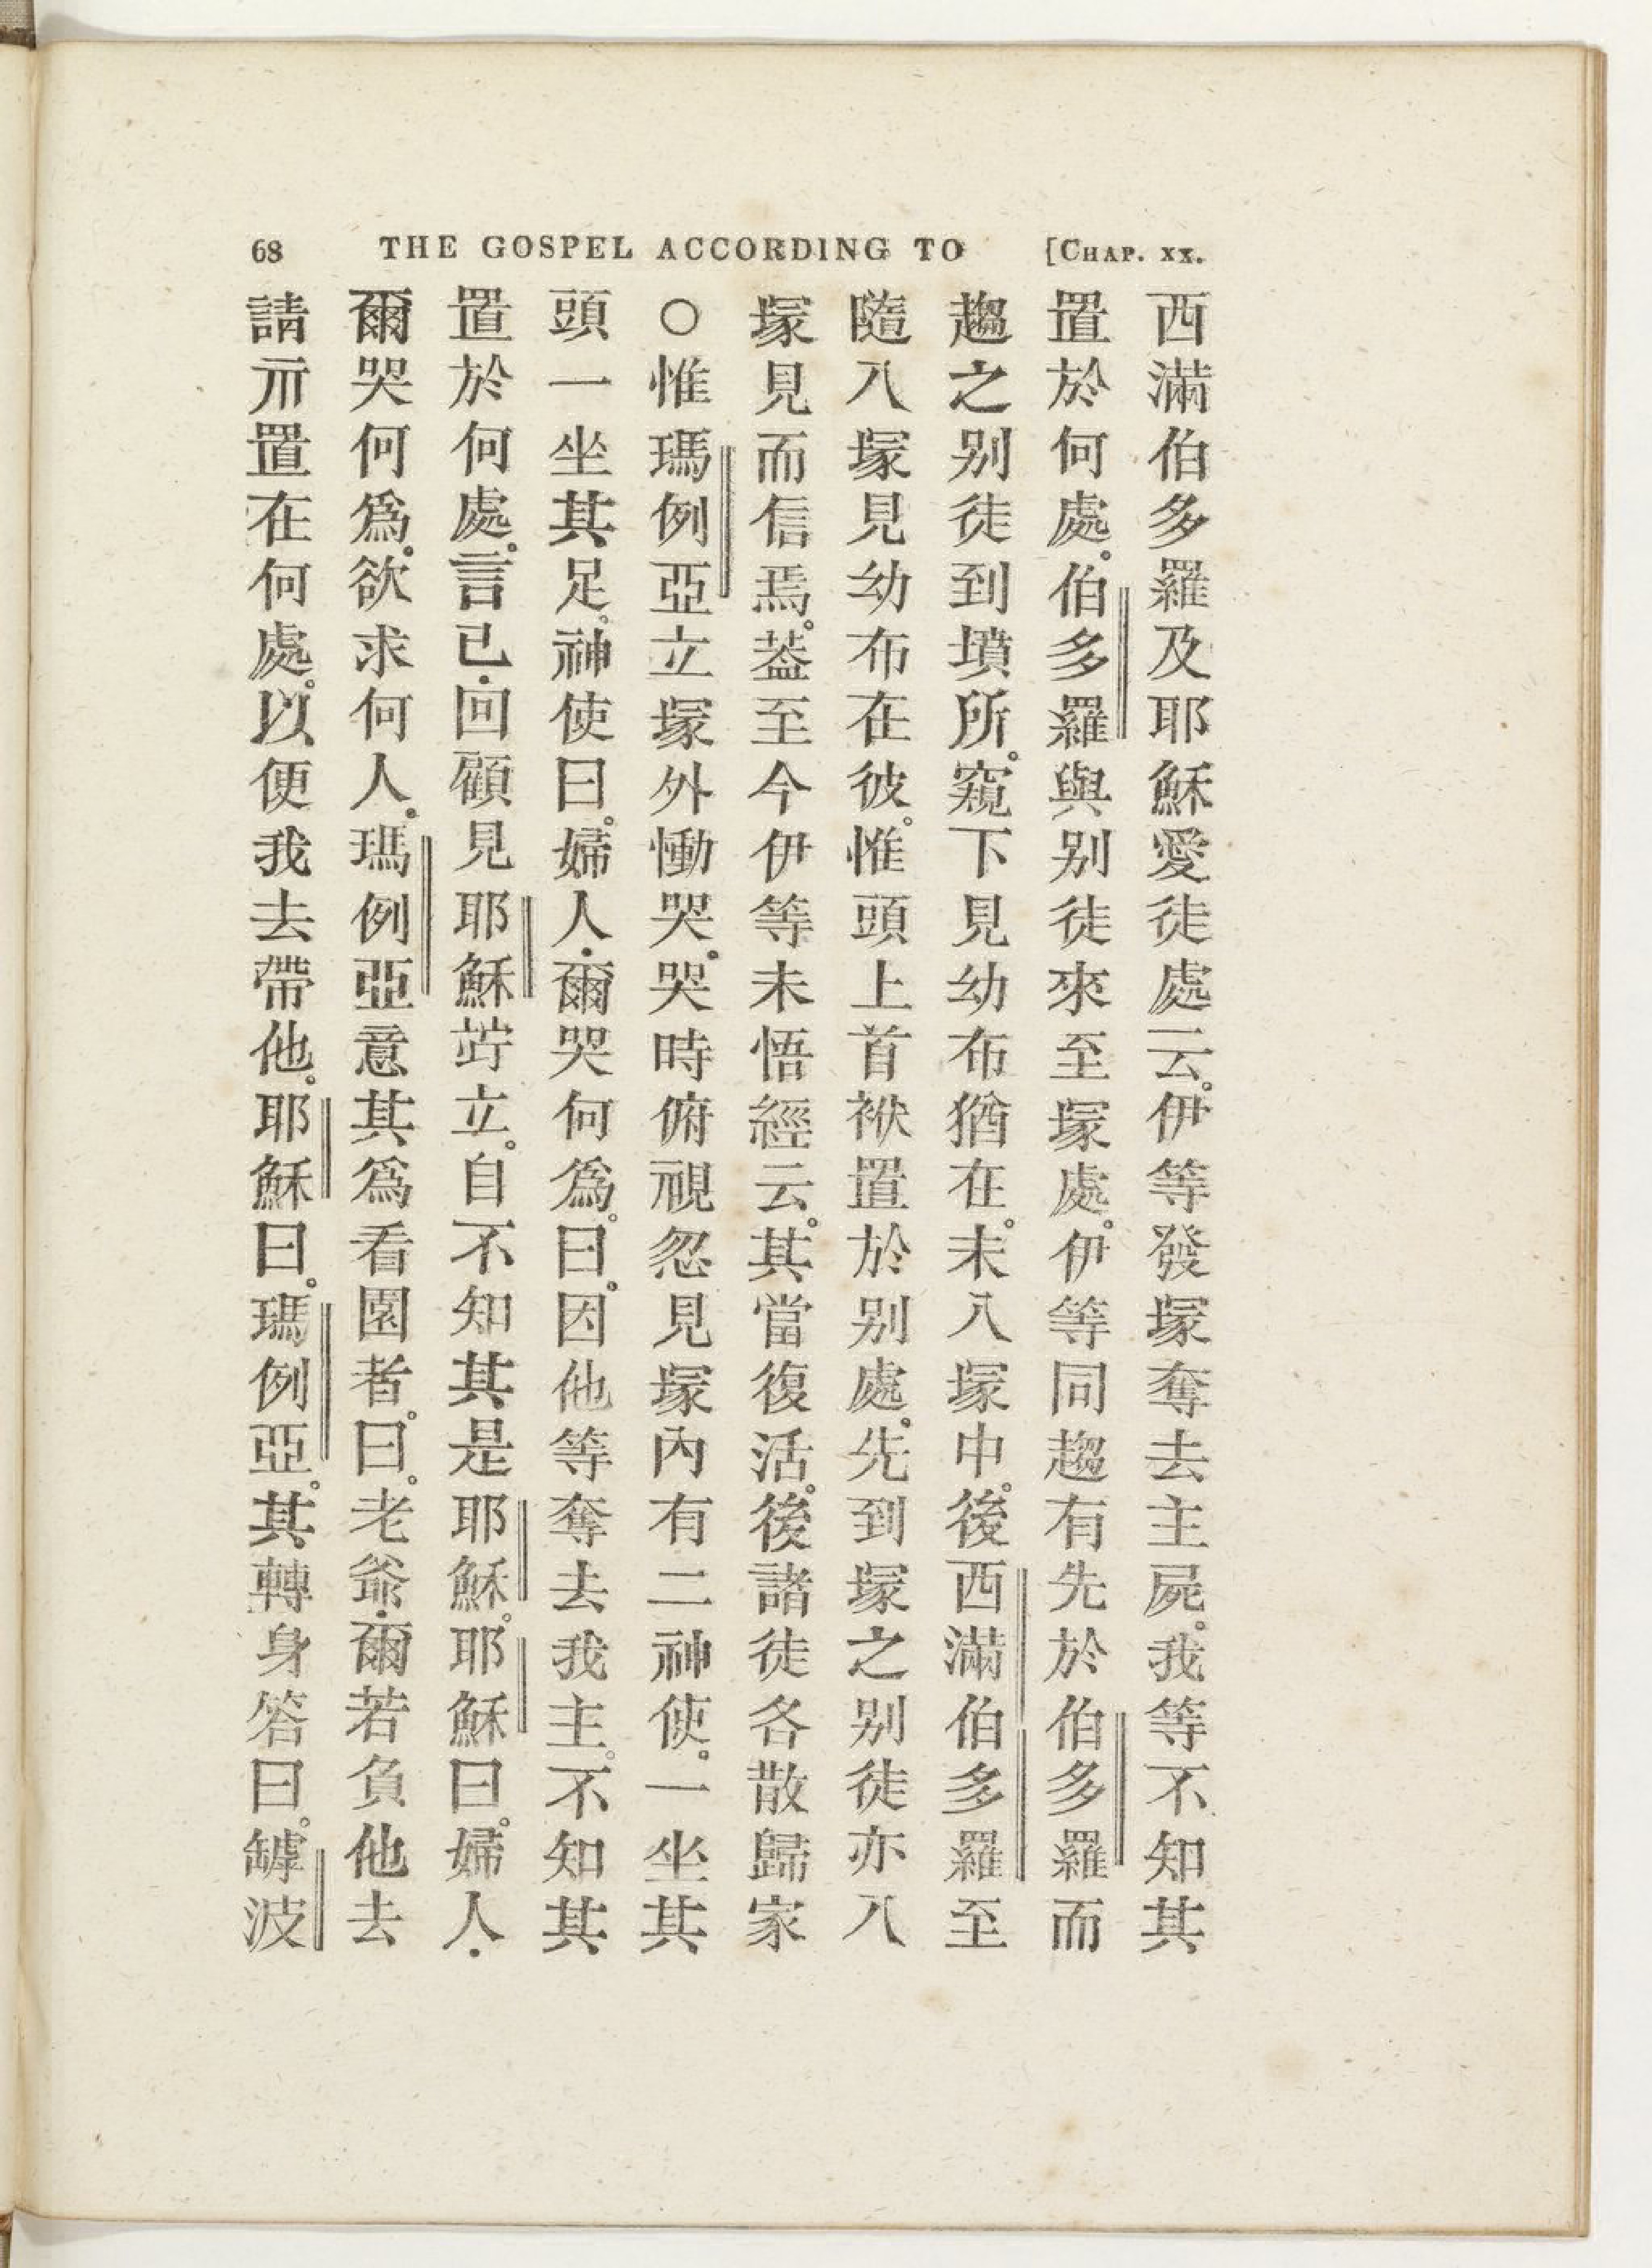 68 THE GOSPEL ACCORDING TO [CHAP. XX.
西滿伯多羅及耶穌愛徒處云。伊等發塚奪去主屍。我等不知其
置於何處。伯多羅與别徒來至塚處。伊等同趨有先於伯多羅而
趨之别徒到墳所。窺下見幼布猶在。未入塚中。後西滿伯多羅至
隨入塚見幼布在彼。惟頭上首袱置於别處。先到塚之别徒亦入
塚見而信焉。葢至今伊等未悟經云。其當復活。後諸徒各散歸家
〇惟瑪例亞立塚外慟哭。哭時俯視忽見塚內有二神使。一坐其
頭一坐其足。神使曰。婦人.爾哭何爲。曰。因他等奪去我主。不知其
置於何處。言已.回顧見耶穌竚立。自不知其是耶穌。耶穌曰。婦人.
爾哭何爲。欲求何人。瑪例亞意其爲看園者。曰。老爺.爾若負他去
請示置在何處。以便我去帶他。耶穌曰。瑪例亞。其轉身答曰。罅波